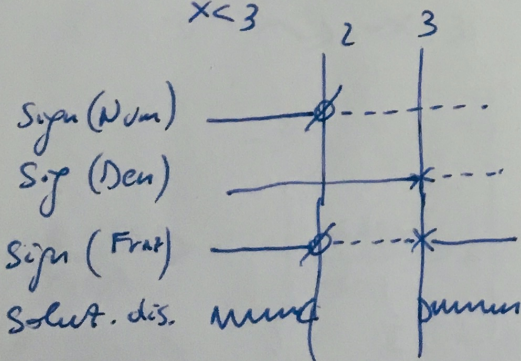 x<3
2 3
Sign (Num)
Sig (Den)
Sign (Fraz)
Solut. dis.